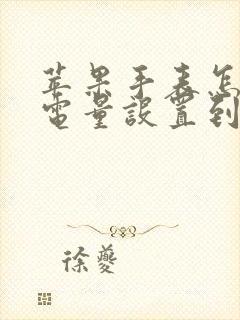 苹果手表怎
电量设置到
徐夔